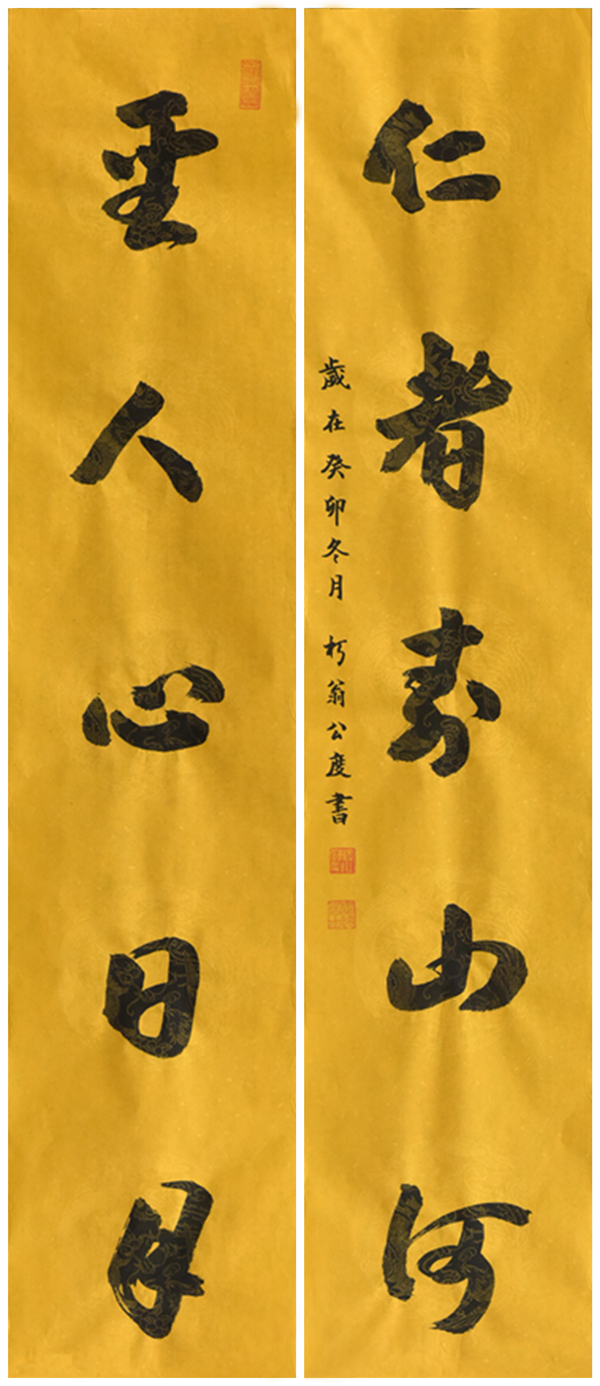 聖人心日月
仁者寿山河
歲在癸卯冬月 朽翁公度書